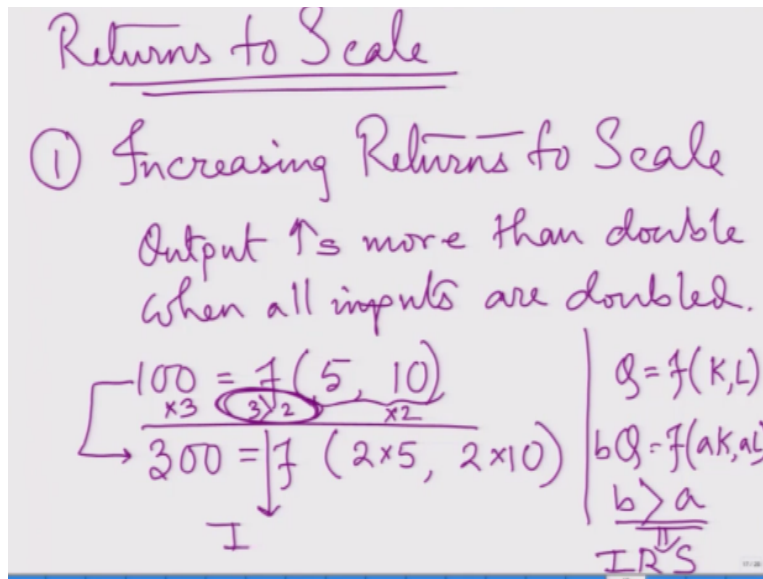 Returns to Scale
① Increasing Returns to Scale
Output ↑s more than double
when all inputs are doubled.
100 = f (5, 10)
×3 3>2 ×2
300 = f (2×5, 2×10)
I
Q = f(K,L)
bQ = f(aK,aL
b > a
IRS